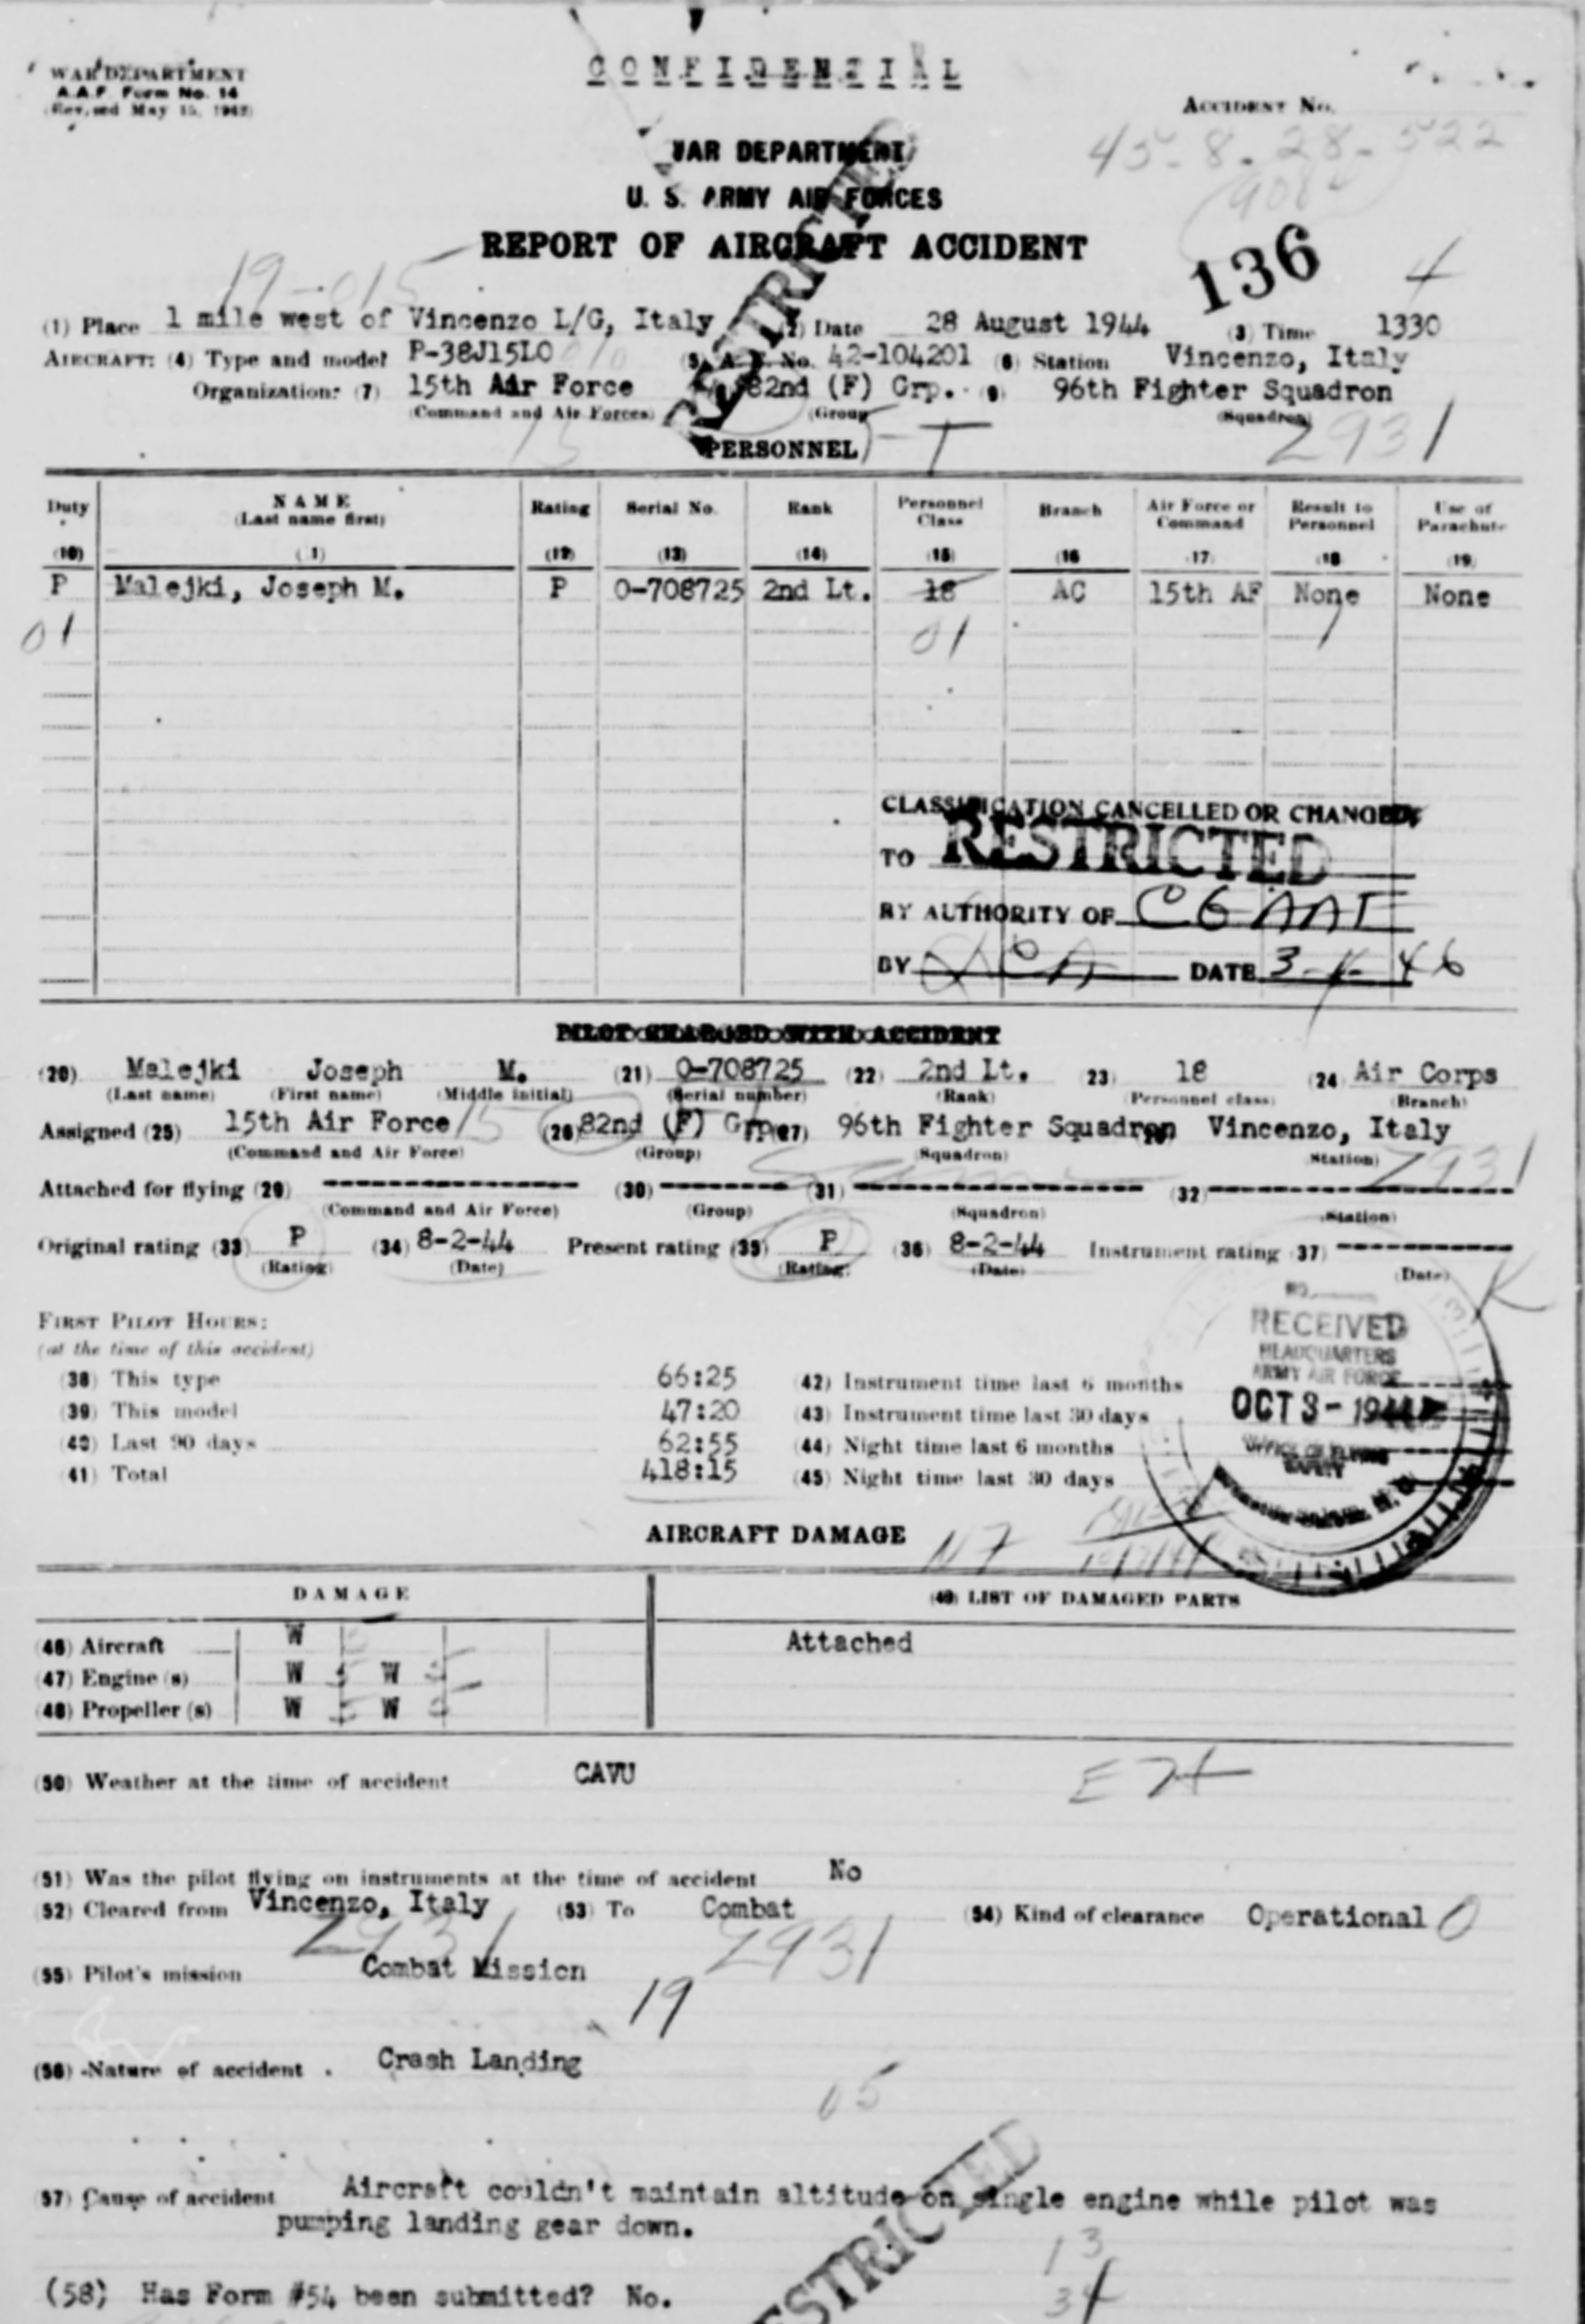 CONFIDENTIAL
WAR DEPARTMENT
A.A.F. Form No. 14
(Revised May 15, 1942)
ACCIDENT No.
45-8-28-522
WAR DEPARTMENT
U. S. ARMY AIR FORCES
REPORT OF AIRCRAFT ACCIDENT
RESTRICTED
136
4
19-015
(1) Place 1 mile west of Vincenzo L/G, Italy (2) Date 28 August 1944 (3) Time 1330
AIRCRAFT: (4) Type and model P-38J15LO (5) A. F. No. 42-104201 (6) Station Vincenzo, Italy
Organization: (7) 15th Air Force 82nd (F) Grp. (9) 96th Fighter Squadron
(Command and Air Forces) (Group) (Squadron)
15 2931
PERSONNEL
Duty NAME (Last name first) Rating Serial No. Rank Personnel Class Branch Air Force or Command Result to Personnel Use of Parachute
(10) (11) (12) (13) (14) (15) (16) (17) (18) (19)
P Malejki, Joseph M. P O-708725 2nd Lt. 18 AC 15th AF None None
01 01
CLASSIFICATION CANCELLED OR CHANGED
TO RESTRICTED
BY AUTHORITY OF CG AAF
BY DATE 3-4-46
PILOT CHARGED WITH ACCIDENT
(20) Malejki Joseph M. (21) O-708725 (22) 2nd Lt. (23) 18 (24) Air Corps
(Last name) (First name) (Middle initial) (Serial number) (Rank) (Personnel class) (Branch)
Assigned (25) 15th Air Force 15 (26) 82nd (F) Grp. (27) 96th Fighter Squadron Vincenzo, Italy
(Command and Air Force) (Group) (Squadron) (Station) 2931
Attached for flying (29) (30) (31) (32)
(Command and Air Force) (Group) (Squadron) (Station)
Original rating (33) P (34) 8-2-44 Present rating (35) P (36) 8-2-44 Instrument rating (37)
(Rating) (Date) (Rating) (Date) (Date)
K
FIRST PILOT HOURS:
(at the time of this accident)
(38) This type 66:25 (42) Instrument time last 6 months
(39) This model 47:20 (43) Instrument time last 30 days
(40) Last 90 days 62:55 (44) Night time last 6 months
(41) Total 418:15 (45) Night time last 30 days
RECEIVED
HEADQUARTERS
ARMY AIR FORCE
OCT 3 - 1944
OFFICE OF FLYING
SAFETY
AIRCRAFT DAMAGE
DAMAGE (49) LIST OF DAMAGED PARTS
(46) Aircraft W Attached
(47) Engine (s) W W
(48) Propeller (s) W W
(50) Weather at the time of accident CAVU
(51) Was the pilot flying on instruments at the time of accident No
(52) Cleared from Vincenzo, Italy (53) To Combat (54) Kind of clearance Operational O
2931 2931
(55) Pilot's mission Combat Mission
19
(56) Nature of accident Crash Landing
05
(57) Cause of accident Aircraft couldn't maintain altitude on single engine while pilot was
pumping landing gear down.
13
34
RESTRICTED
(58) Has Form #54 been submitted? No.